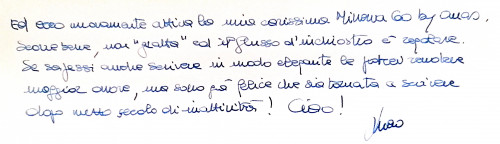 Ed ecco nuovamente attiva la mia carissima Minerva 60 by Omas.
Scorre bene, non "gratta" ed il flusso d'inchiostro è regolare.
Se sapessi anche scrivere in modo elegante le potrei rendere
maggior onore, ma sono già felice che sia tornata a scrivere
dopo mezzo secolo di inattività! Ciao!